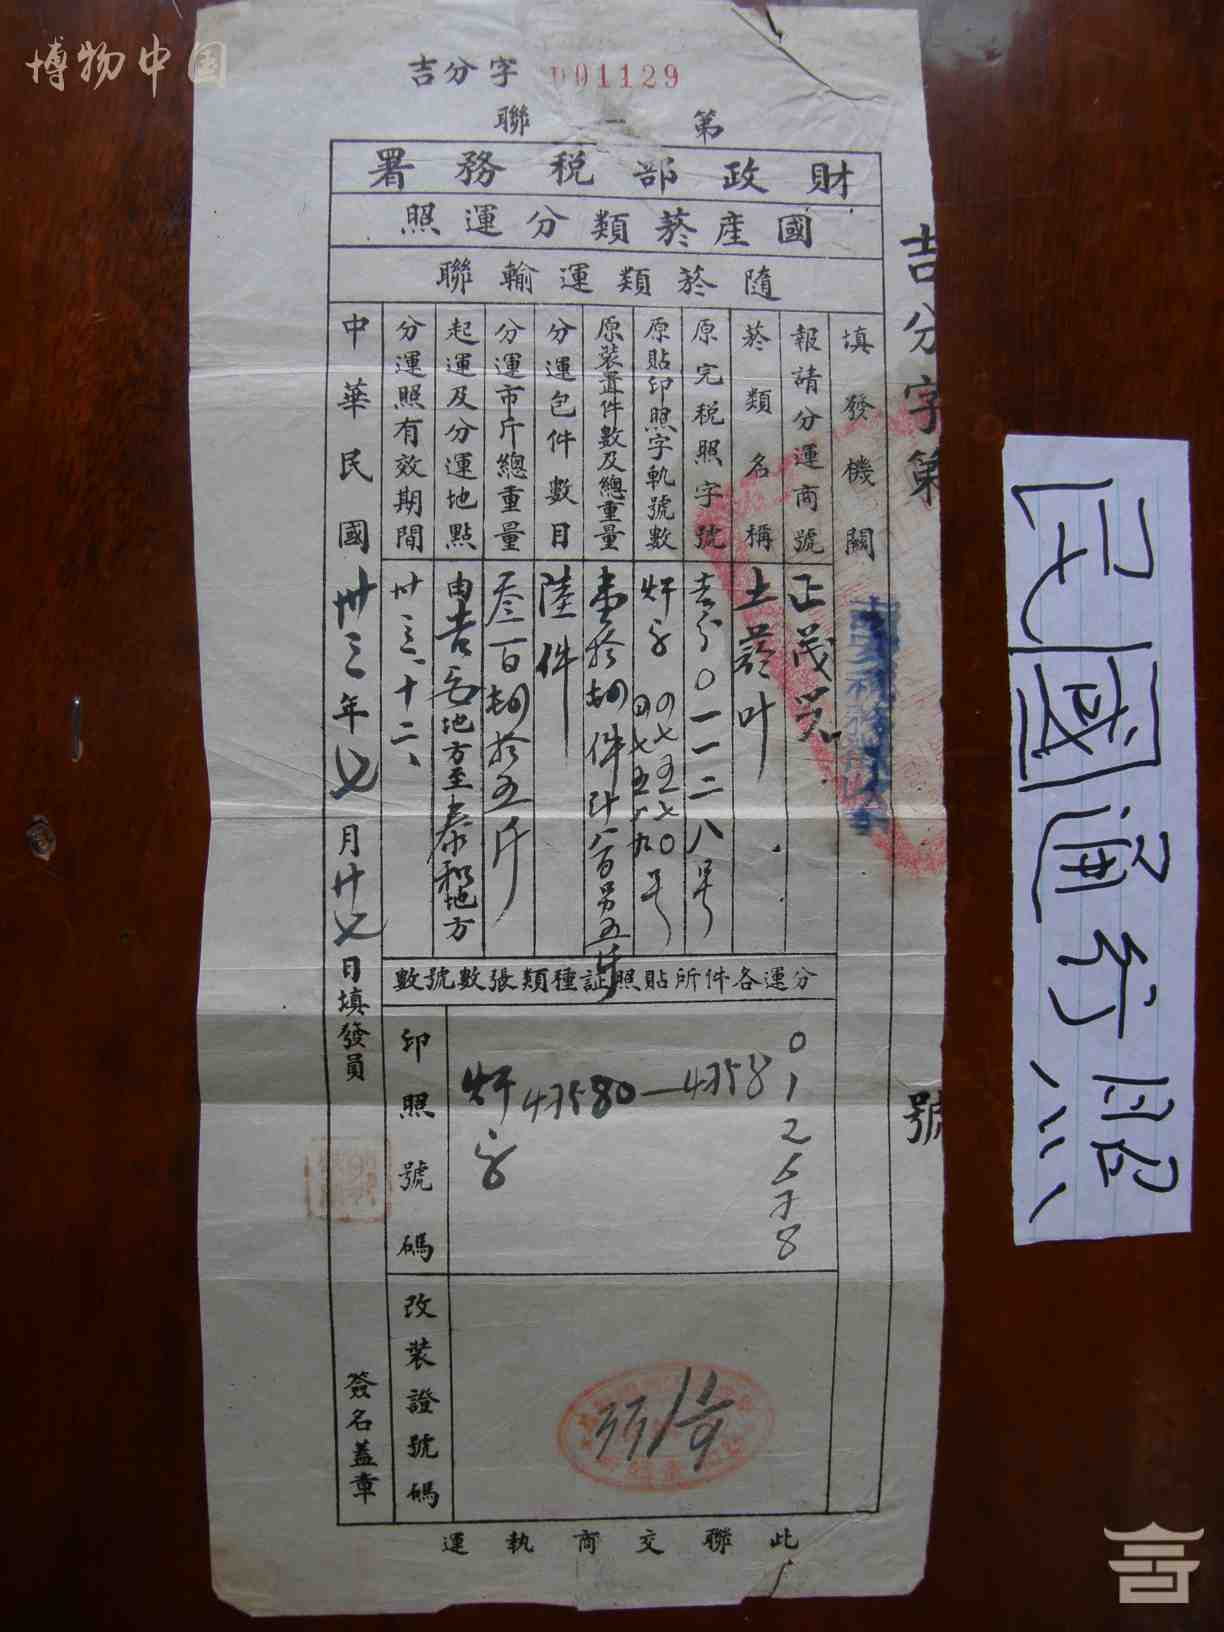 博物中国
吉分字 001129
第一聯
財政部税務署
國産菸類分運照
隨菸類運輸聯
填發機關
報請分運商號 正茂
菸類名稱 土菸叶
原完税照字號 吉分0一一二八号
原貼印照字軌號數 字
原裝置件數及總重量
分運包件數目 陸件
分運市斤總重量 叁百捌拾五斤
起運及分運地點 由吉安地方至泰和地方
分運照有效期間 卅三、十二、
中華民國卅三年七月廿七日填發員
簽名蓋章
分運各件所貼照証種類張數號數
印照號碼
字 47580—4758
0
1
2
6
7
8
改裝證號碼
此聯交商執運
吉分字第 號
民國通行照